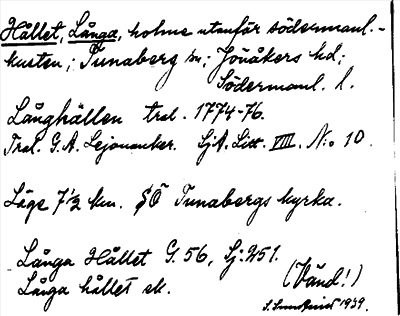 Hållet, Långa, holme utanför södermanl.-
kusten; Tunaberg sn; Jönåkers hd;
Södermanl. l.
Långhällen tral. 1774-76.
Tral. G.A. Lejonanker. SjA. Litt. VIII. No 10.
Läge 7 1/2 km. SÖ Tunabergs kyrka.
Långa Hållet G. 56, Sj: 251.
Långa hållet ek.
(Vänd!)
S. Sundkvist 1939.